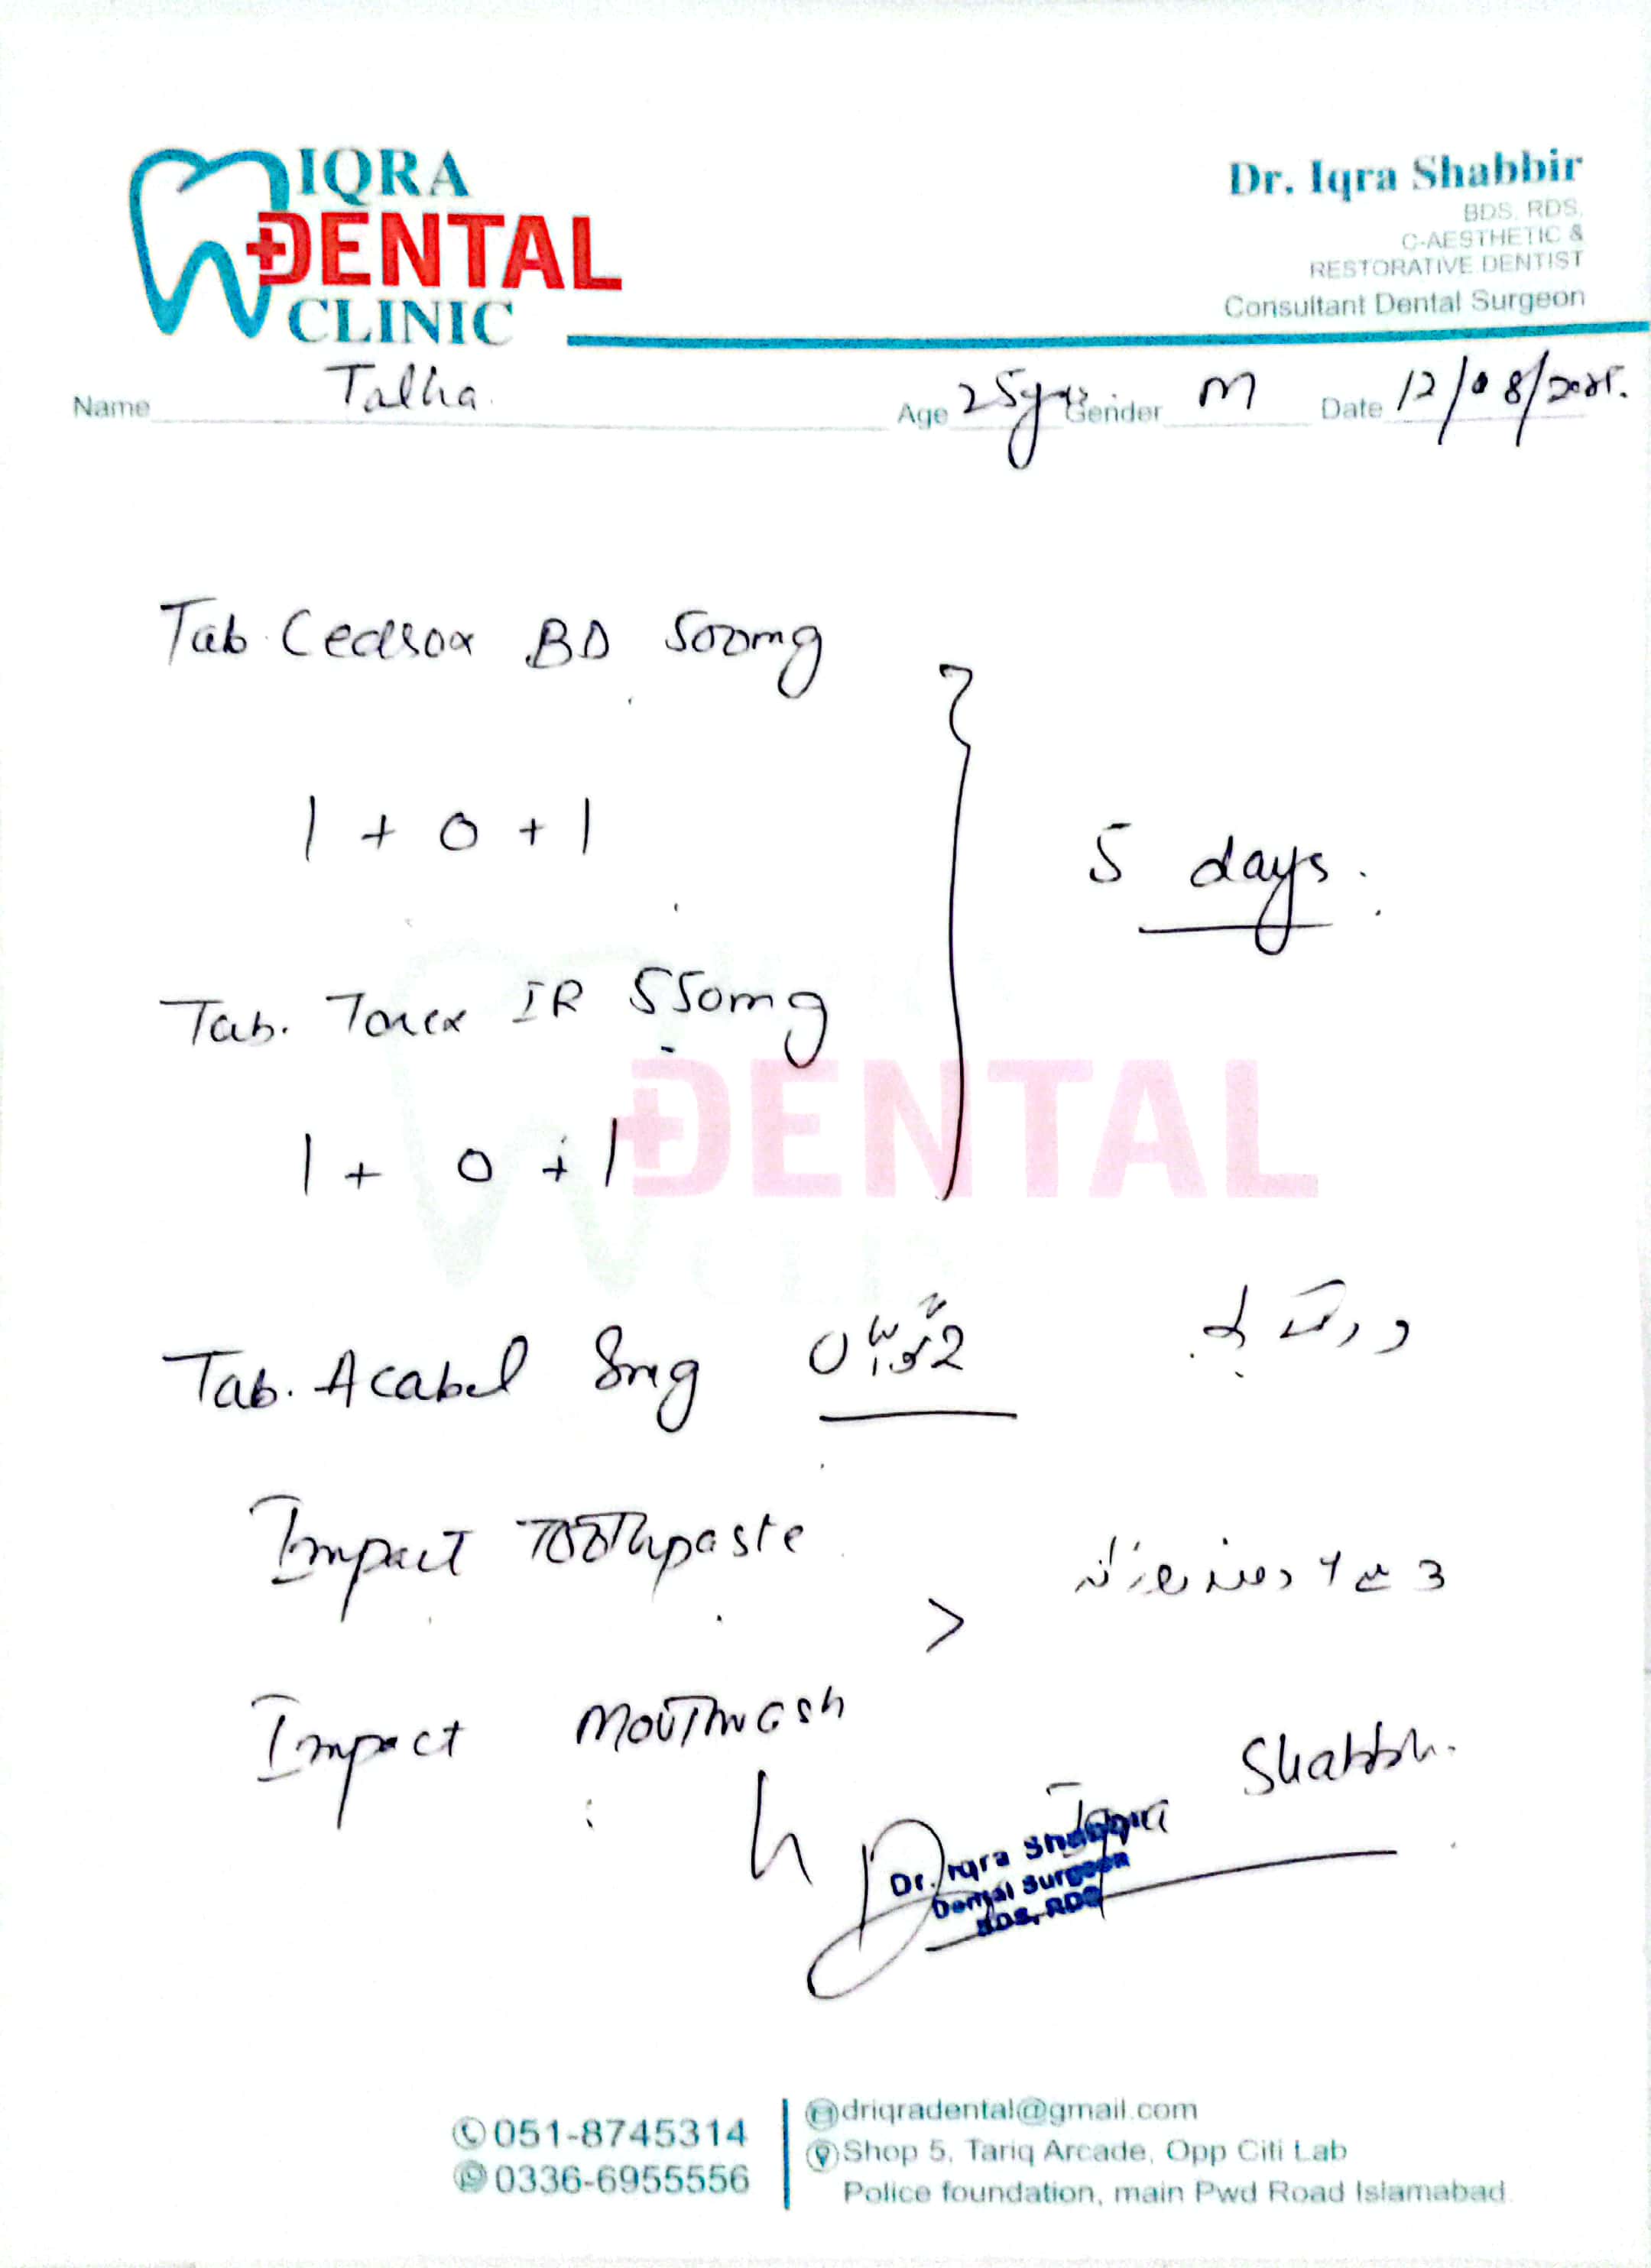 IQRA
DENTAL
CLINIC
Dr. Iqra Shabbir
BDS, RDS,
C-AESTHETIC &
RESTORATIVE DENTIST
Consultant Dental Surgeon
Name Talha. Age 25yrs Gender M Date 12/08/2025.
Tab. BD 500mg
1 + 0 + 1
5 days.
Tab. IR 550mg
1 + 0 + 1
DENTAL
Tab. Acabel 8mg
Impact Toothpaste
Impact Mouthwash
Dr. Iqra Shabbir.
Dr. Iqra Shabbir
Dental Surgeon
BDS, RDS
051-8745314
0336-6955556
driqradental@gmail.com
Shop 5, Tariq Arcade, Opp Citi Lab
Police foundation, main Pwd Road Islamabad